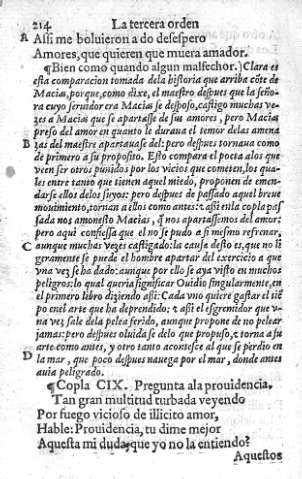 214 La tercera orden
A Assi me boluieron a do desespero
Amores, que quieren que muera amador.
¶Bien como quando algun malfechor.) Clara es
esta comparacion tomada dela historia que arriba cõte de
Macias, porque, como dixe, el maestro despues que la seño
ra cuyo seruidor era Macias se desposo, castigo muchas ve
zes a Macias que se apartasse de sus amores, pero Macias
preso del amor en quanto le duraua el temor delas amena
B zas del maestre apartauase del: pero despues tornaua como
de primero a su proposito. Esto compara el poeta alos que
veen ser otros punidos por los vicios que cometen, los qua-
les entre tanto que tienen aquel miedo, proponen de emen-
darse ellos delos suyos: pero despues de passado aquel breue
mouimiento, tornan a ellos como antes: τ assi enla copla pas
sada nos amonesto Macias, q̃ nos apartassemos del amor:
pero aqui confiessa que el no se pudo a si mesmo refrenar,
C aunque muchas vezes castigado: la causa desto es, que no li
geramente se puede el hombre apartar del exercicio a que
vna vez se ha dado: aunque por ello se aya visto en muchos
peligros: lo qual queria significar Ouidio singularmente, en
el primero libro diziendo assi: Cada vno quiere gastar el tiẽ
po enel arte que ha deprendido: τ assi el esgremidor que v-
na vez sale dela pelea ferido, aunque propone de no pelear
jamas: pero despues oluidase delo que propuso, τ torna a su
arte como antes, y otro tanto acontesce al que se perdio en
D la mar, que poco despues nauega por el mar, donde antes
auia peligrado.
¶Copla CIX. Pregunta ala prouidencia.
Tan gran multitud turbada veyendo
Por fuego vicioso de illicito amor,
Hable: Prouidencia, tu dime mejor
Aquesta mi duda, que yo no la entiendo?
Aquestos